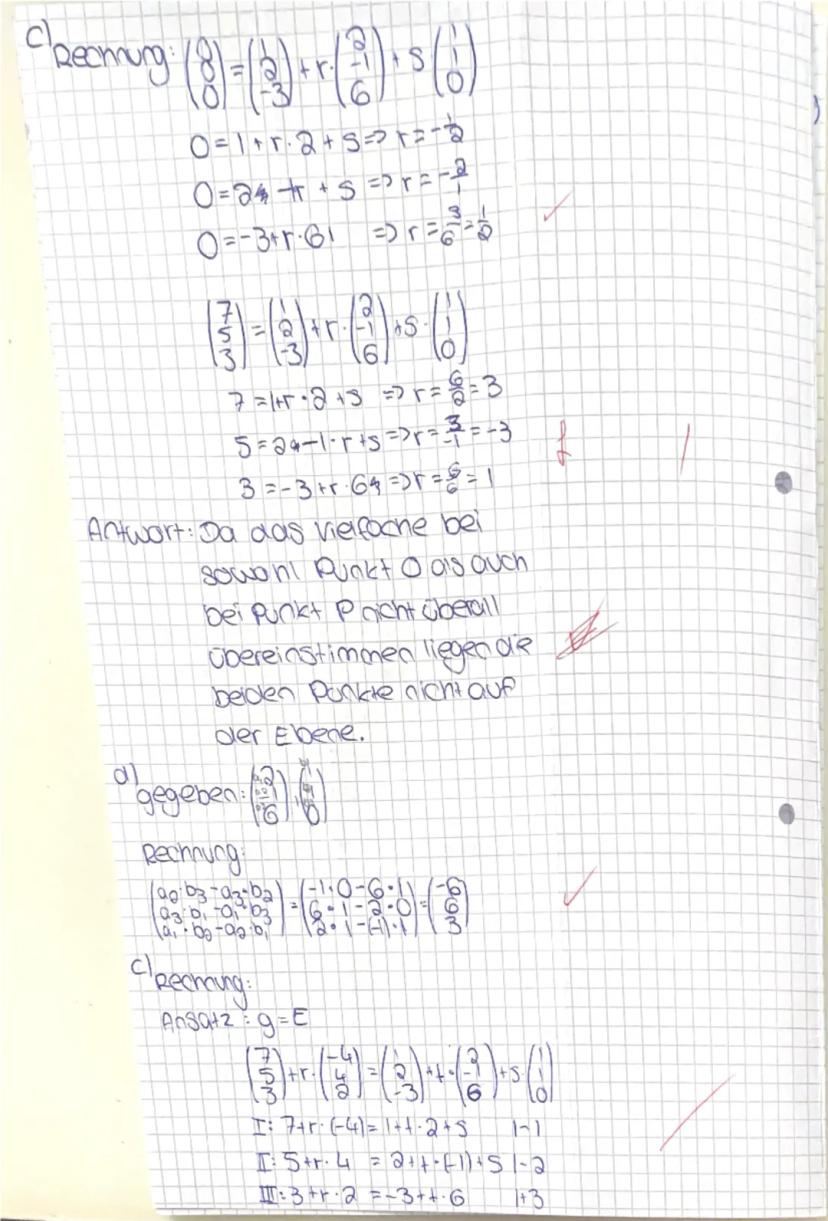 c) Rechnung: (0 0 0) = (1 2 -3) + r·(2 -1 6) + s(1 1 0)
0 = 1 + r·2 + s => r = -1/2
0 = 2 -r + s => r = -2/1
0 = -3+r·6 => r = 3/6 = 1/2
(7 5 3) = (1 2 -3) + r·(2 -1 6) + s·(1 1 0)
7 = 1+r·2+s => r = 6/2 = 3
5 = 2 -1·r+s => r = 3/-1 = -3
3 = -3+r·6 => r = 6/6 = 1
f
Antwort: Da das Vielfache bei
sowohl Punkt O als auch
bei Punkt P nicht überall
übereinstimmen liegen die
beiden Punkte nicht auf
der Ebene.
d) gegeben: (2 -1 6), (1 1 0)
Rechnung:
(a2·b3-a3·b2 a3·b1-a1·b3 a1·b2-a2·b1) = (-1·0-6·1 6·1-2·0 2·1-(-1)·1) = (-6 6 3)
c) Rechnung:
Ansatz: g=E
(7 5 3) + r·(-4 4 2) = (1 2 -3) + t·(2 -1 6) + s·(1 1 0)
I: 7+r·(-4) = 1+t·2+s |-1
II: 5+r·4 = 2+t·(-1)+s |-2
III: 3+r·2 = -3+t·6 |+3